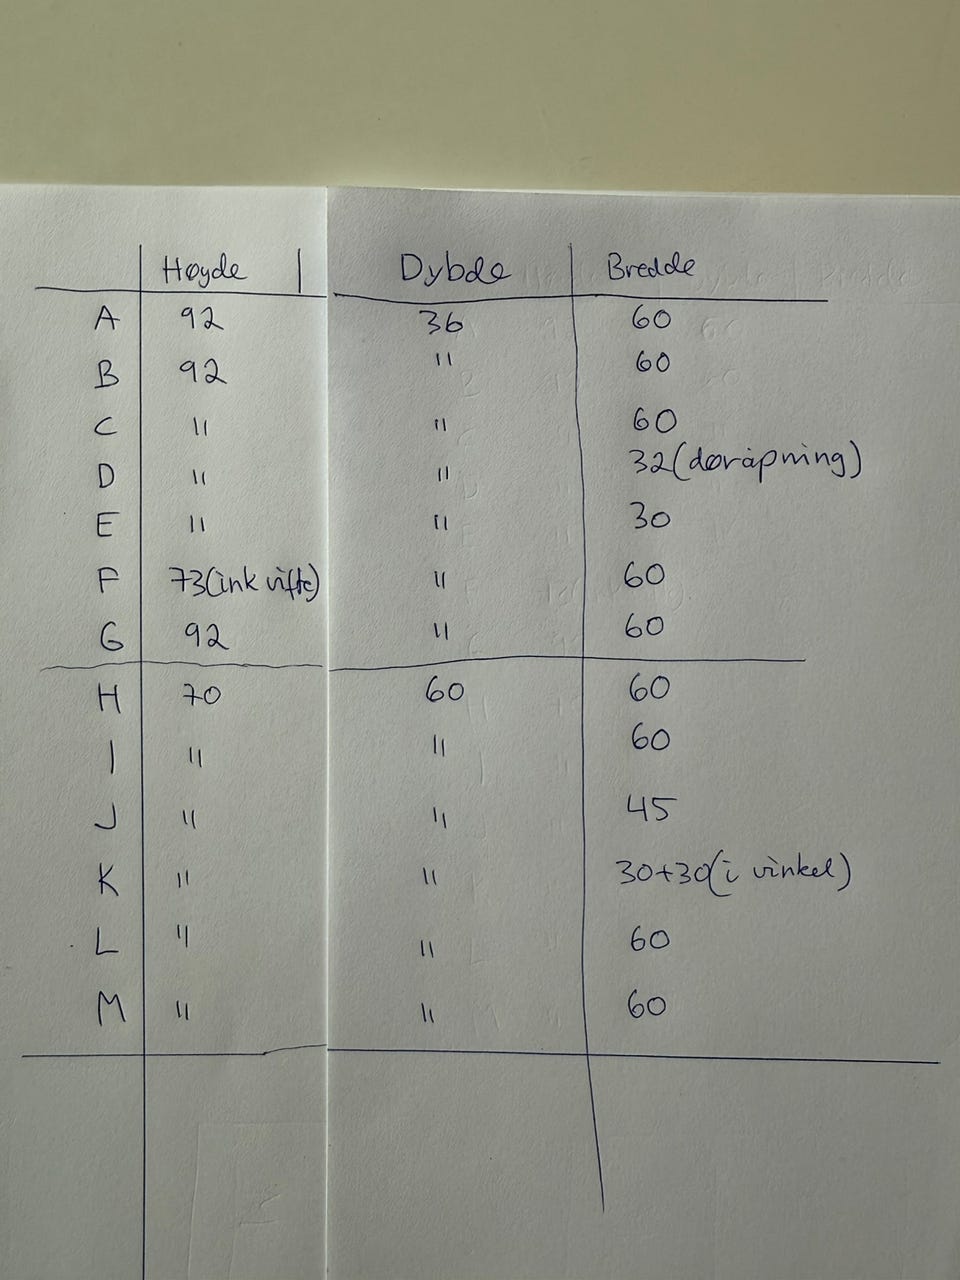 Høyde | Dybde Bredde
A 92 36 60
B 92 " 60
C " " 60
D " " 32 (døråpning)
E " " 30
F 73 (ink vifte) " 60
G 92 " 60
H 70 60 60
I " " 60
J " " 45
K " " 30+30 (i vinkel)
L " " 60
M " " 60